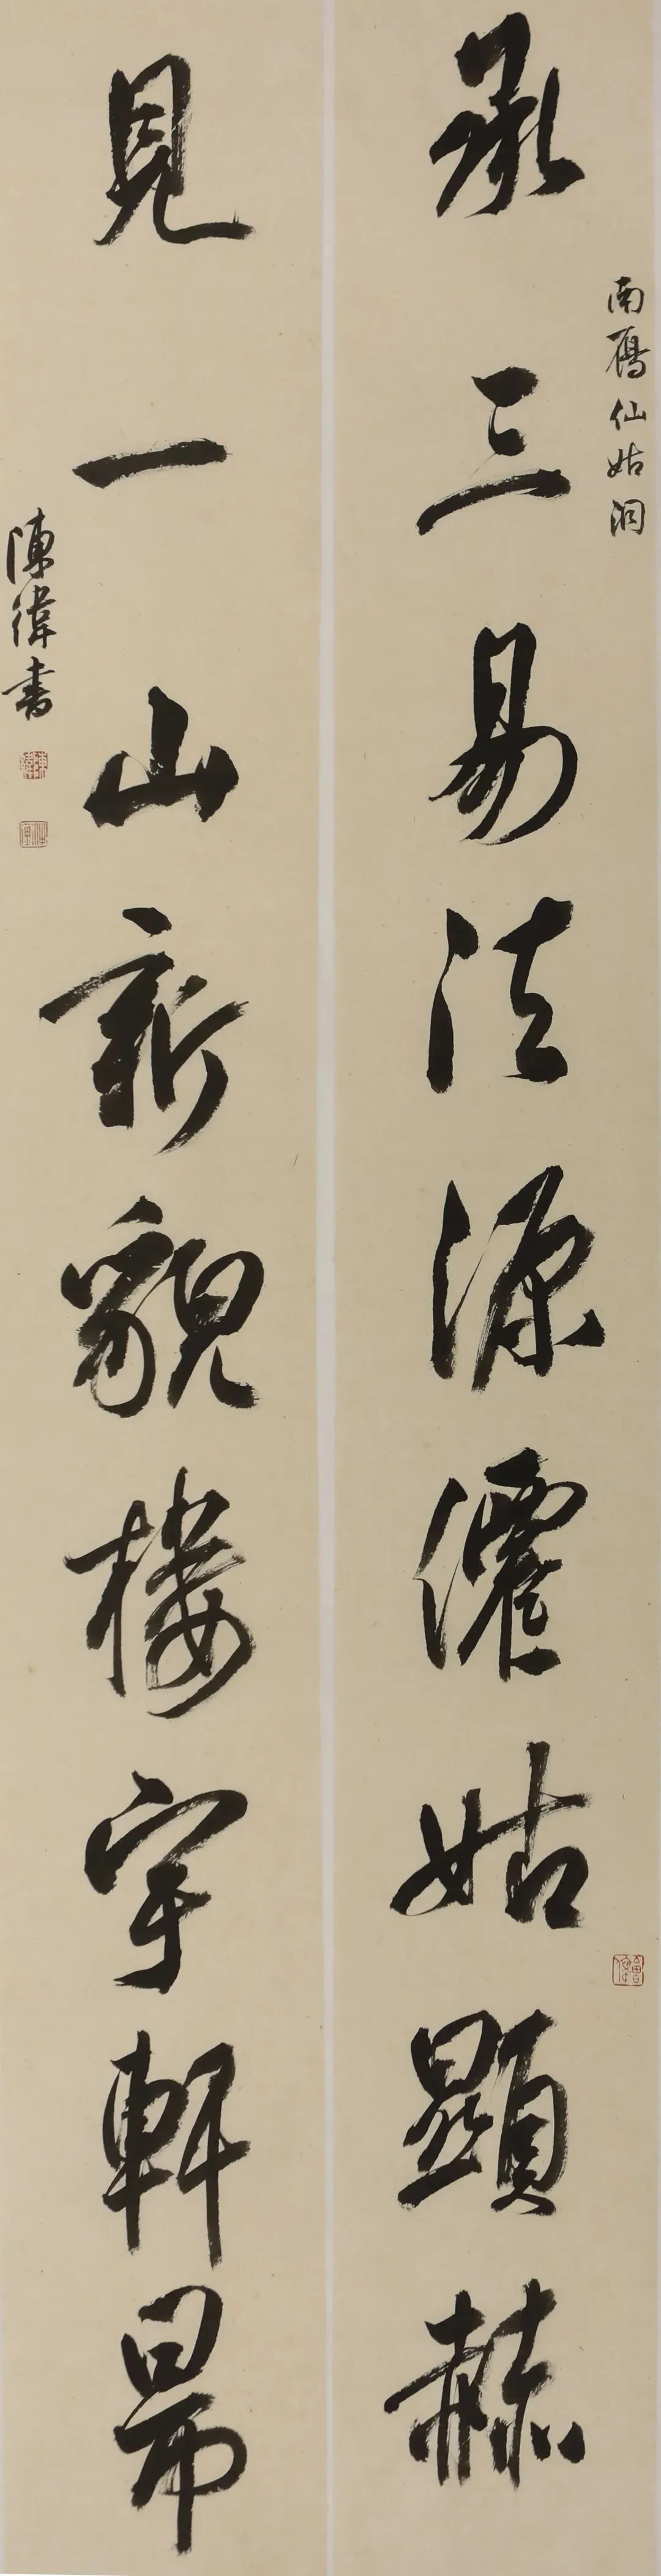 南鴈仙姑洞
承三易法源僊姑顯赫
見一山新貌樓宇軒昂
陳偉書